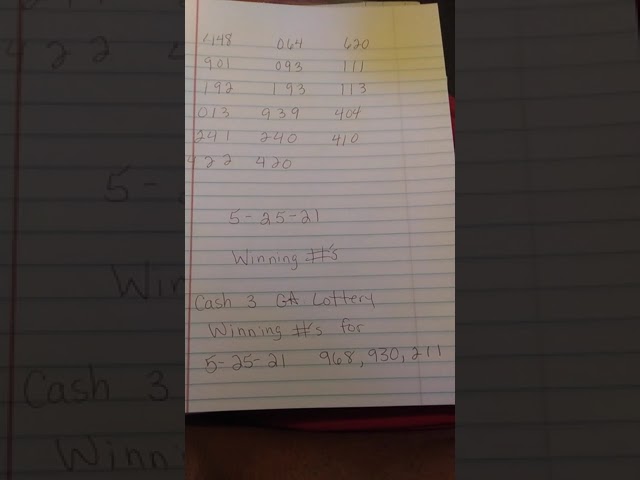 448 064 620
901 093 111
192 193 113
013 939 404
241 240 410
422 420
5-25-21
Winning #'s
Cash 3 GA Lottery
Winning #'s for
5-25-21 968, 930, 211